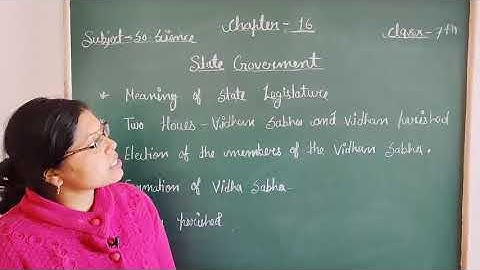 Chapter - 16
Subject - So Sience
Class - 7th
State Government
* Meaning of State Legislature
Two Houes - Vidhan Sabha and Vidhan parishad
Election of the members of the Vidhan Sabha.
of Vidha Sabha
parishad